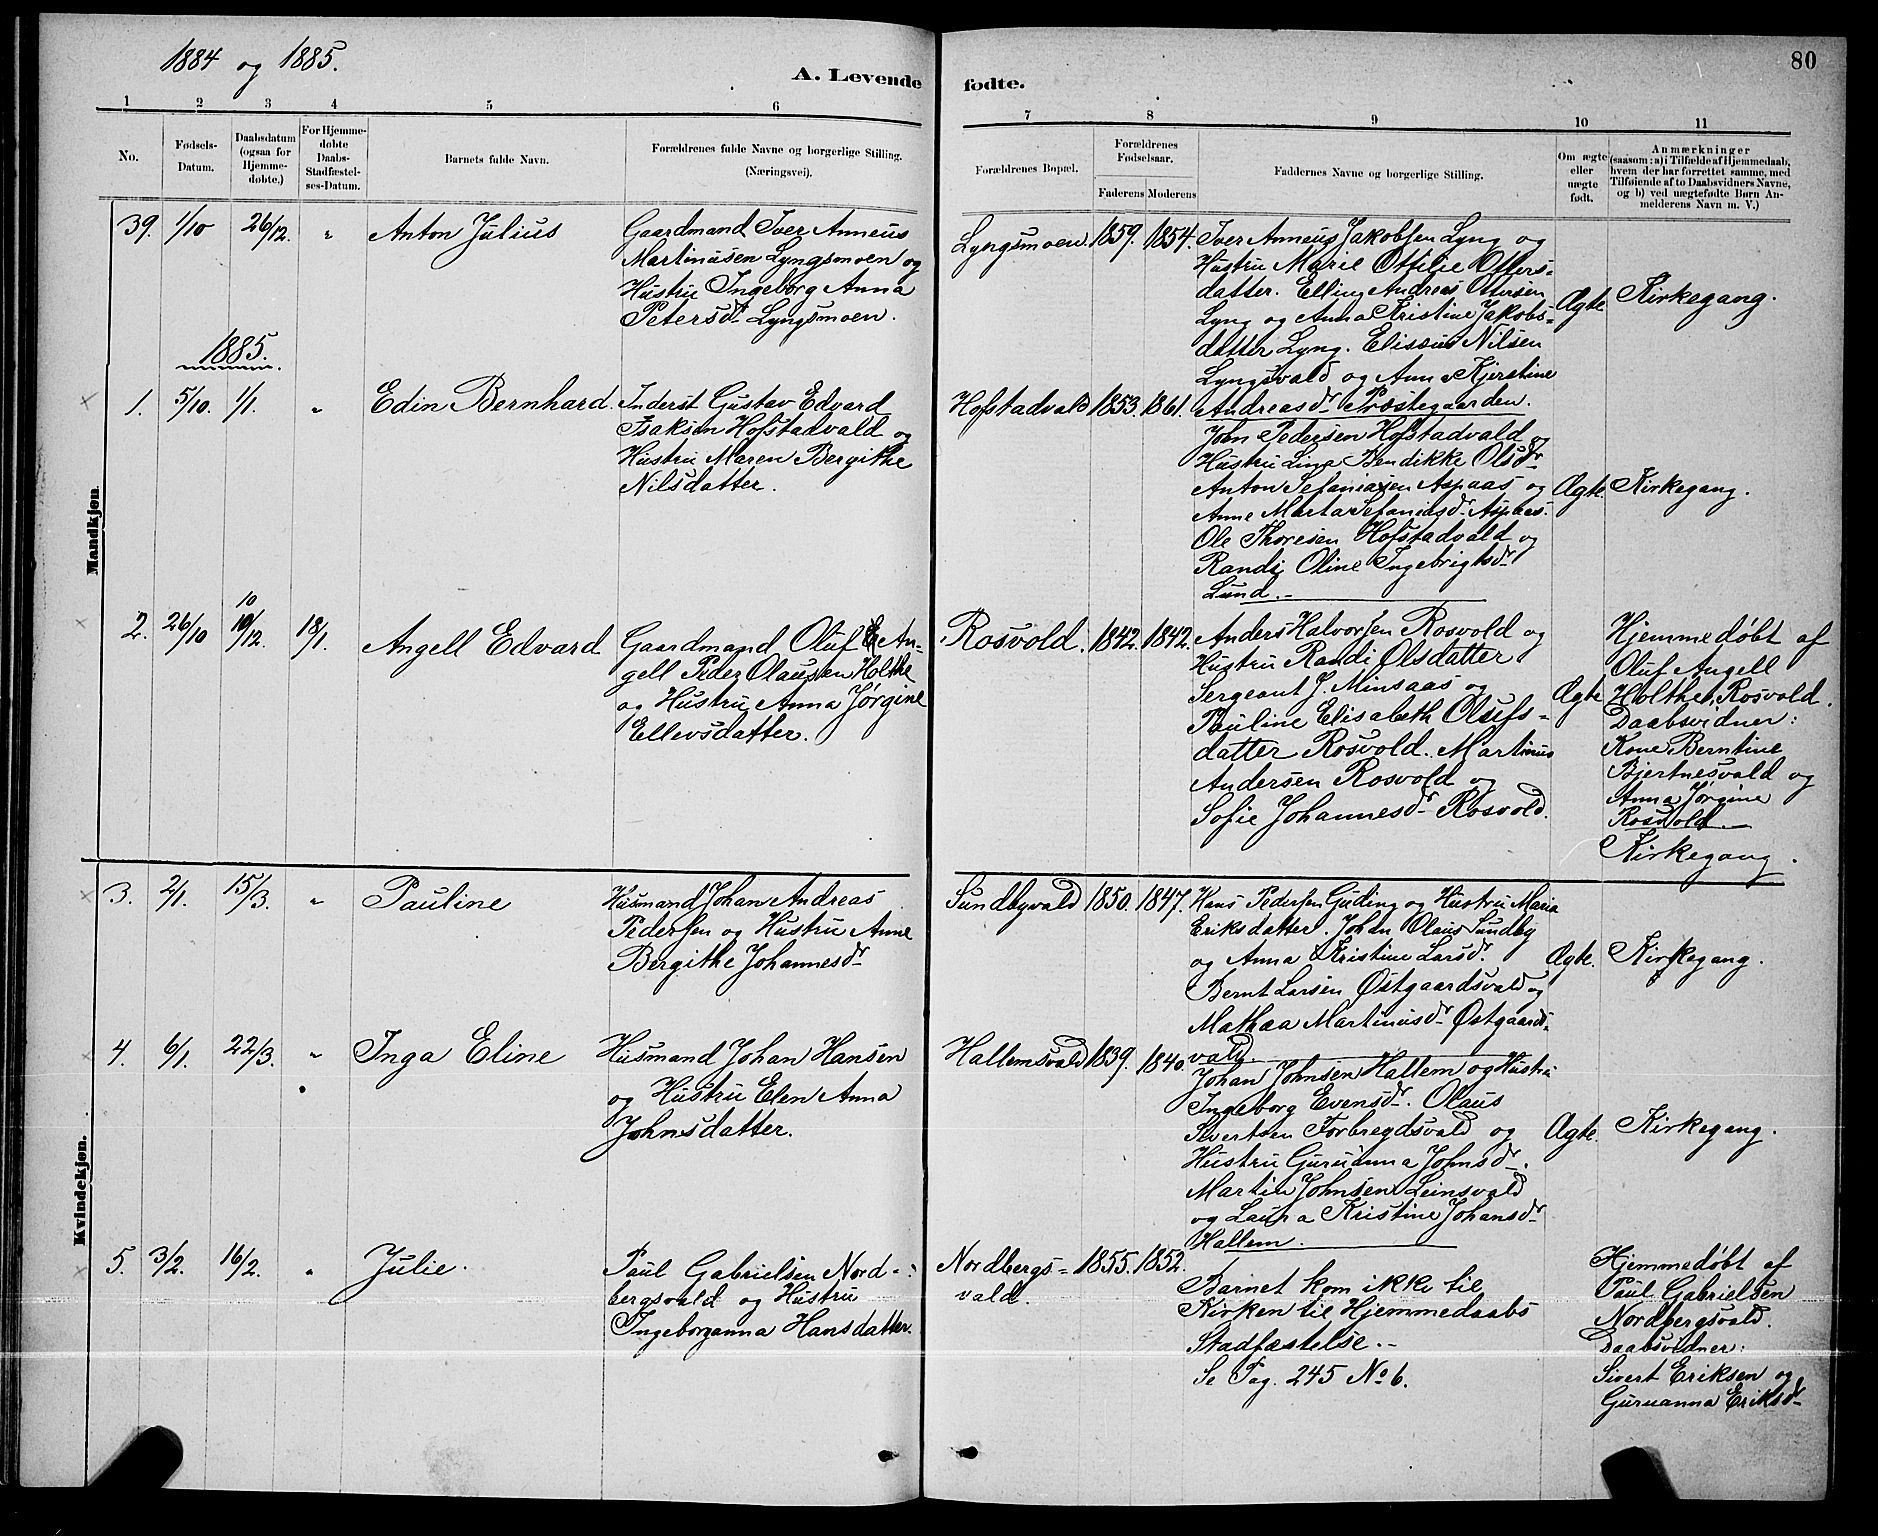 1884 og 1885.
80
A. Levende fødte.
1 2 3 4 5 6 7 8 9 10 11
No.
Fødsels-
Datum.
Daabsdatum
(ogsaa for
Hjemme-
døbte.)
For Hjemme-
døbte
Daabs-
Stadfæstel-
ses-Datum.
Barnets fulde Navn.
Forældrenes fulde Navne og borgerlige Stilling.
(Næringsvei).
Forældrenes Bopæl.
Forældrenes
Fødselsaar.
Faderens Moderens
Faddernes Navne og borgerlige Stilling.
Om ægte
eller
uægte
født.
Anmærkninger
(saasom: a) i Tilfælde af Hjemmedaab,
hvem der har forrettet samme, med
Tilføiende af to Daabsvidners Navne,
og b) ved uægtefødte Børn An-
melderens Navn m. V.)
Mandkjøn.
39. 1/10 26/12. " Anton Julius
Gaardmand Iver Anneus
Martinusen Lyngsmoen og
Hustru Ingeborg Anna
Petersdr Lyngsmoen.
Lyngsmoen. 1859. 1854.
Iver Anneus Jakobsen Lyng og
Hustru Marie Ottilie Otters-
datter. Elling Andreas Ottersen
Lyng og Anna Kristine Jakobs-
datter Lyng. Elisæus Nilsen
Lyngsvald og Anna Kjerstine
Andreasdr Præstegaarden.
Ægte
Kirkegang.
1885.
1. 5/10. 1/1. " Edin Bernhard.
Inderst Gustav Edvard
Isaksen Hofstadvald og
Hustru Maren Bergithe
Nilsdatter.
Hofstadvald 1853. 1861.
John Pedersen Hofstadvald og
Hustru Lina Bendikke Olsdr
Anton Sefaniasen Aspaas og
Anne Marta Sefaniasdr Aspaas.
Ole Thoresen Hofstadvald og
Randi Oline Ingebrigtsdr
Lund.
Ægte.
Kirkegang.
2. 26/10 10/12. 18/1. Angell Edvard
10
Gaardmand Oluf An-
gell Peder Olausen Holthe
og Hustru Anna Jørgine
Ellevsdatter.
Rosvold. 1842. 1842.
Anders Halvorsen Rosvold og
Hustru Randi Olsdatter
Sergeant J. Minsaas og
Pauline Elisabeth Olufs-
datter Rosvold. Martinus
Andersen Rosvold og
Sofie Johannesdr Rosvold.
Ægte
Hjemmedøbt af
Oluf Angell
Holthe, Rosvold.
Daabsvidner:
Kone Berntine
Bjertnesvald og
Anna Jørgine
Rosvold.
Kirkegang.
Kvindekjøn.
3. 2/1. 15/3. " Pauline
Husmand Johan Andreas
Pedersen og Hustru Anne
Bergithe Johannesdr
Sundbyvald 1850. 1847.
Hans Pedersen Guding og Hustru Maria
Eriksdatter. Johan Olaus Sundby
og Anna Kristine Larsdr.
Bernt Larsen Østgaardsvald og
Mathea Martinusdr Østgaards-
vald.
Ægte.
Kirkegang.
4. 6/1. 22/3. " Inga Eline
Husmand Johan Hansen
og Hustru Elen Anna
Johnsdatter.
Hallemsvald 1839. 1840.
Johan Johnsen Hallem og Hustru
Ingeborg Evensdr. Olaus
Sivertsen Forbregdsvald og
Hustru Guruanna Johnsdr.
Martin Johnsen Leinsvald
og Laura Kristine Johansdr
Hallem.
Ægte.
Kirkegang.
5. 3/2. 16/2. " Julie.
Paul Gabrielsen Nord-
bergsvald og Hustru
Ingeborganna Hansdatter.
Nordbergs-
vald. 1855. 1852.
Barnet kom ikke til
Kirken til Hjemmedaabs
Stadfæstelse.
Se Pag. 245 No 6.
Hjemmedøbt af
Paul Gabrielsen
Nordbergsvald.
Daabsvidner:
Sivert Eriksen og
Guruanna Eriksdr